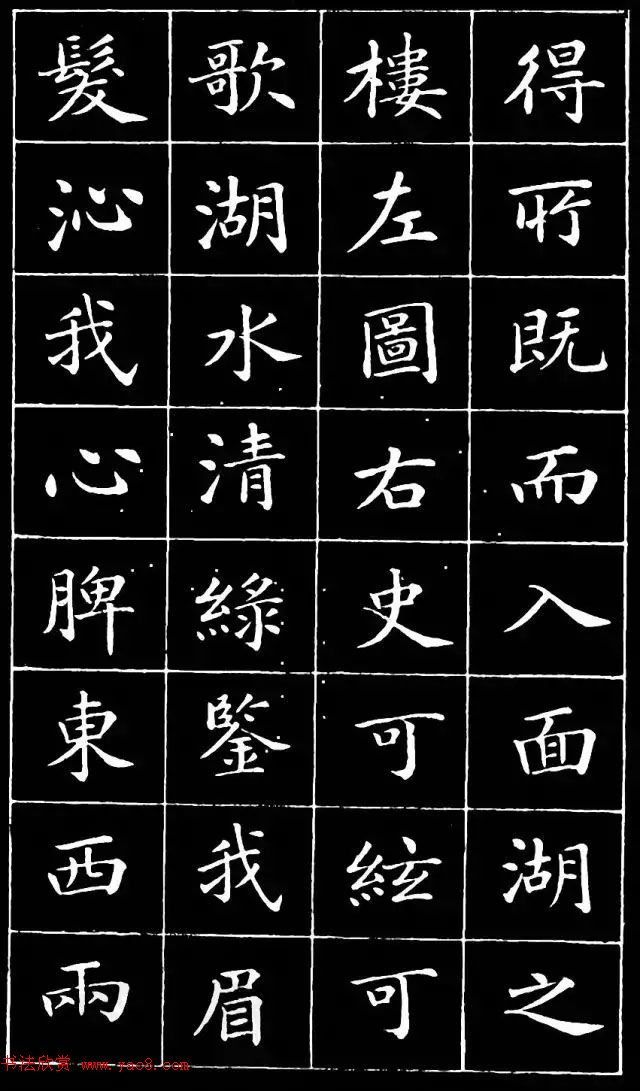 得所既而入面湖之
樓左圖右史可絃可
歌湖水清綠鑒我眉
髮沁我心脾東西兩
书法欣赏 www.yac8.com